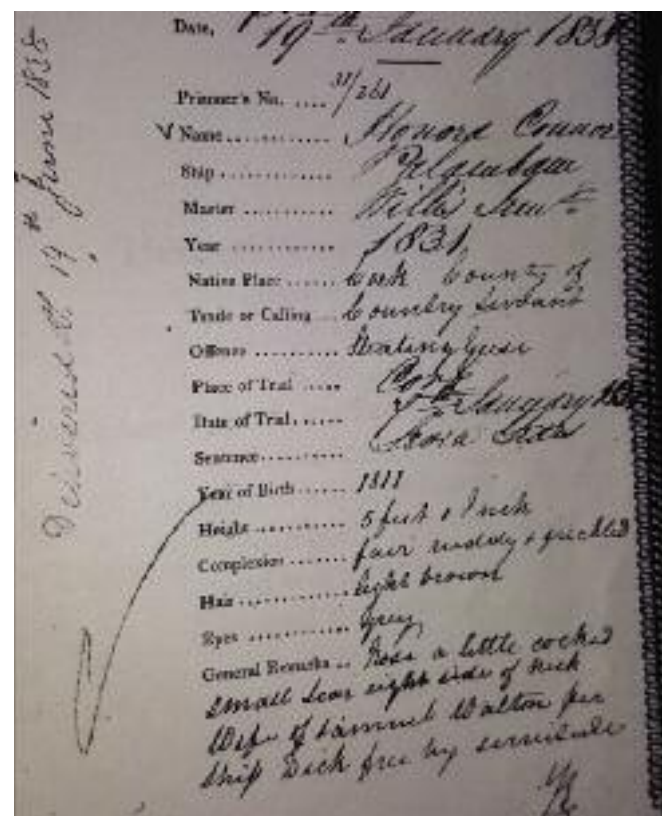 Date, 19th January 1838
Prisoner's No. .... 31/261
Name ............. Honora Connor
Ship .............
Master ........... Willis Senr
Year ............ 1831
Native Place ...... Cork County of
Trade or Calling ... Country Servant
Offence .......... Stealing Geese
Place of Trial ..... Cork
Date of Trial, ...... January
Sentence ..........
Year of Birth ...... 1811
Height ........... 5 feet 1 Inch
Complexion ....... fair ruddy & freckled
Hair .............. light brown
Eyes ............ grey
General Remarks .. Nose a little cocked
small scar right side of neck
Wife of Samuel Walton per
ship Dick free by servitude
Delivered 19th June 1838